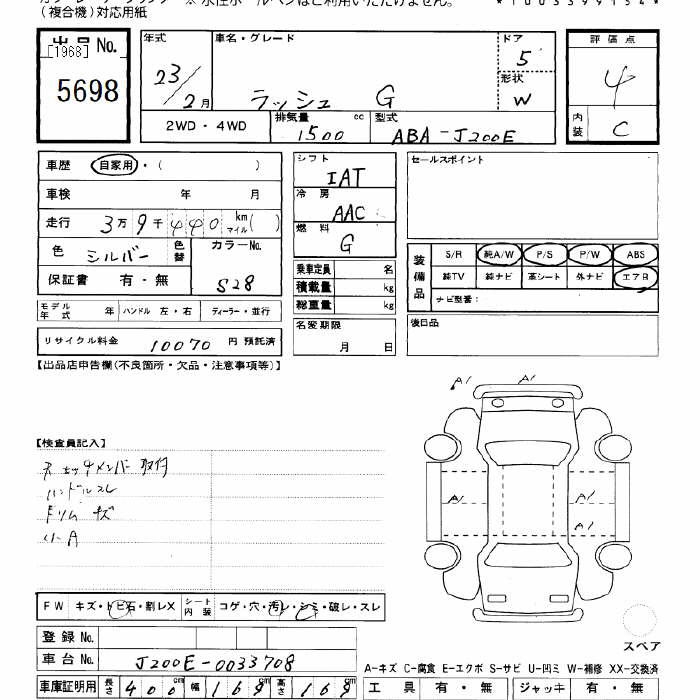 (複合機)対応用紙
出品 No.
[1968]
5698
年式
23/2月
車名・グレード
ラッシュ G
ドア
5
形状
W
評価点
4
内装
C
2WD・4WD
排気量 cc
1500
型式
ABA-J200E
車歴 自家用・( )
車検 年 月
走行 3万9千440 km マイル( )
色 シルバー 色替
カラーNo.
S28
保証書 有・無
モデル年式 年 ハンドル 左・右 ディーラー・並行
リサイクル料金 10070 円 預託済
シフト
IAT
冷房
AAC
燃料
G
乗車定員 名
積載量 kg
総重量 kg
名変期限
月 日
セールスポイント
装備品
S/R 純A/W P/S P/W ABS
純TV 純ナビ 革シート 外ナビ エアB
ナビ型番:
後日品
【出品店申告欄(不良箇所・欠品・注意事項等)】
【検査員記入】
ハンドルスレ
ドリムキズ
A1
A1
A1
A1
A1
FW キズ・トビ石・割レX シート内装 コゲ・穴・汚レ・シミ・破レ・スレ
登録 No.
車台 No. J200E-0033708
車庫証明用 長さ 400 cm 幅 169 cm 高さ 169 cm
スペア
A-キズ C-腐食 E-エクボ S-サビ U-凹ミ W-補修 XX-交換済
工具 有・無 ジャッキ 有・無